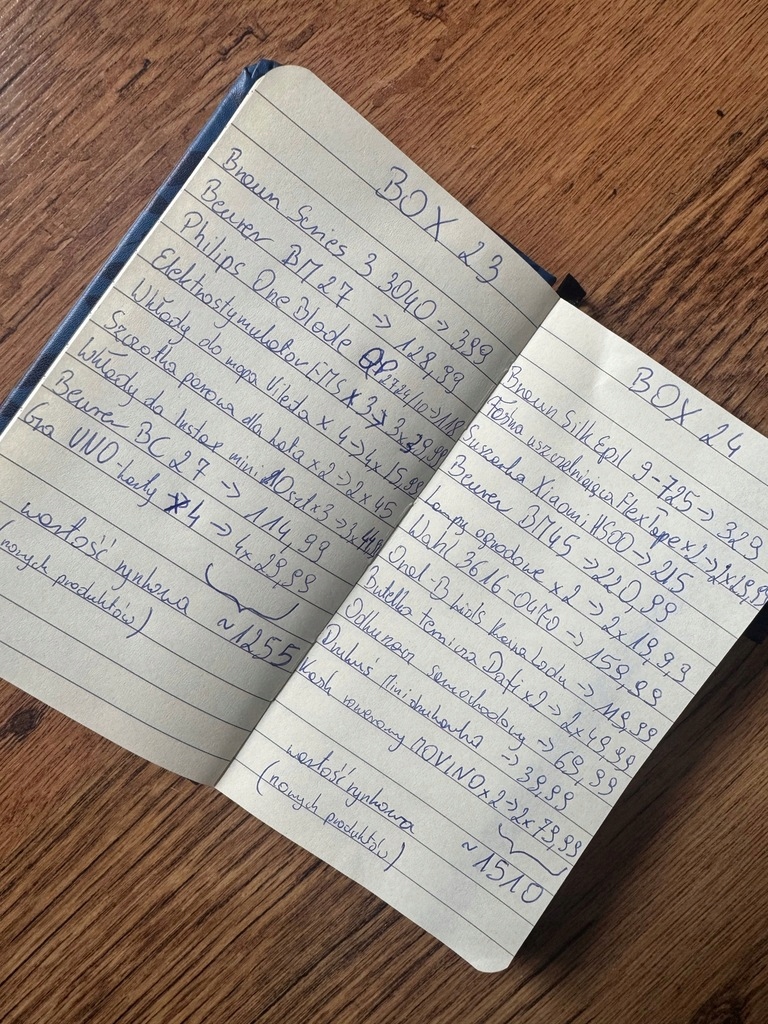 BOX 23
Braun Series 3 3040 → 399
Beurer BM 27 → 128,99
Philips One Blade QP2724/10 → 118
Elektrostymulator EMS x 3 → 3x29,99
Wkłady do mopa Vileda x 4 → 4x 15,99
Szczotka parowa dla kota x2 → 2x 45
Wkłady do Instax mini 10szt x3 → 3x 44,99
Beurer BC 27 → 114,99
Gra UNO-karty x4 → 4x 29,99
wartość rynkowa
(nowych produktów)
~1255
BOX 24
Braun Silk Epil 9-725 → 329
Taśma uszczelniająca Flex Tape x2 → 2x19,99
Suszarka Xiaomi H500 → 215
Beurer BM45 → 220,99
Lampy ogrodowe x2 → 2x 19,99
Wahl 3616-0470 → 159,99
Oral-B kids Kraina Lodu → 119,99
Butelka termiczna Dafi x2 → 2x49,99
Odkurzacz samochodowy → 69,99
mini drukarka → 39,99
Kask rowerowy MOVINO x2 → 2x 79,99
wartość rynkowa
(nowych produktów)
~1510